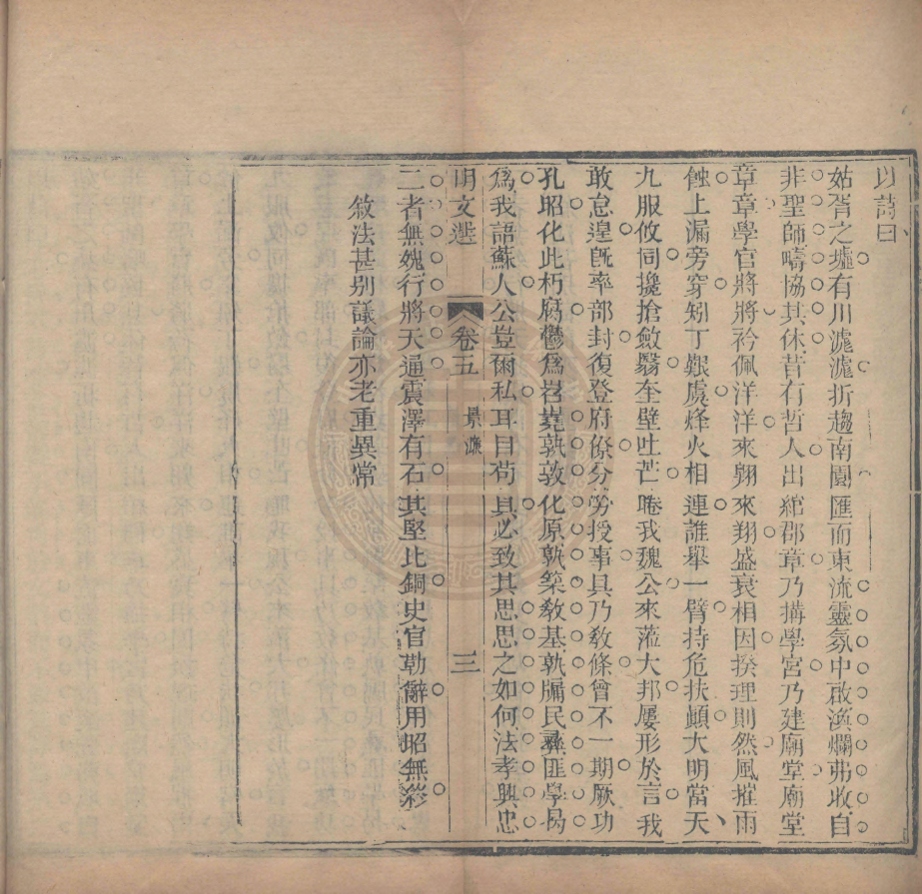 以詩曰
姑胥之墟有川滮滮折趨南圜匯而東流靈氛中啟渙爛弗收自
非聖師疇協其休昔有哲人出綰郡章乃搆學宮乃建廟堂廟堂
章章學官將將衿佩洋洋來翱來翔盛衰相因揆理則然風摧雨
蝕上漏旁穿矧丁艱虞烽火相連誰舉一臂持危扶顛大明當天
九服攸同攙搶斂翳奎壁吐芒睠我魏公來蒞大邦屢形於言我
敢怠遑旣率部封復登府僚分勞授事具乃敎條曾不一期厥功
孔昭化此朽腐鬱為岧嶤孰敦化原孰築敎基孰牖民彝匪學曷
為我語蘇人公豈爾私耳目苟具必致其思思之如何法孝興忠
明文選 卷五 景濂 三
二者無媿行將天通震澤有石其堅比銅史官勒辭用昭無窮
敘法甚別議論亦老重異常